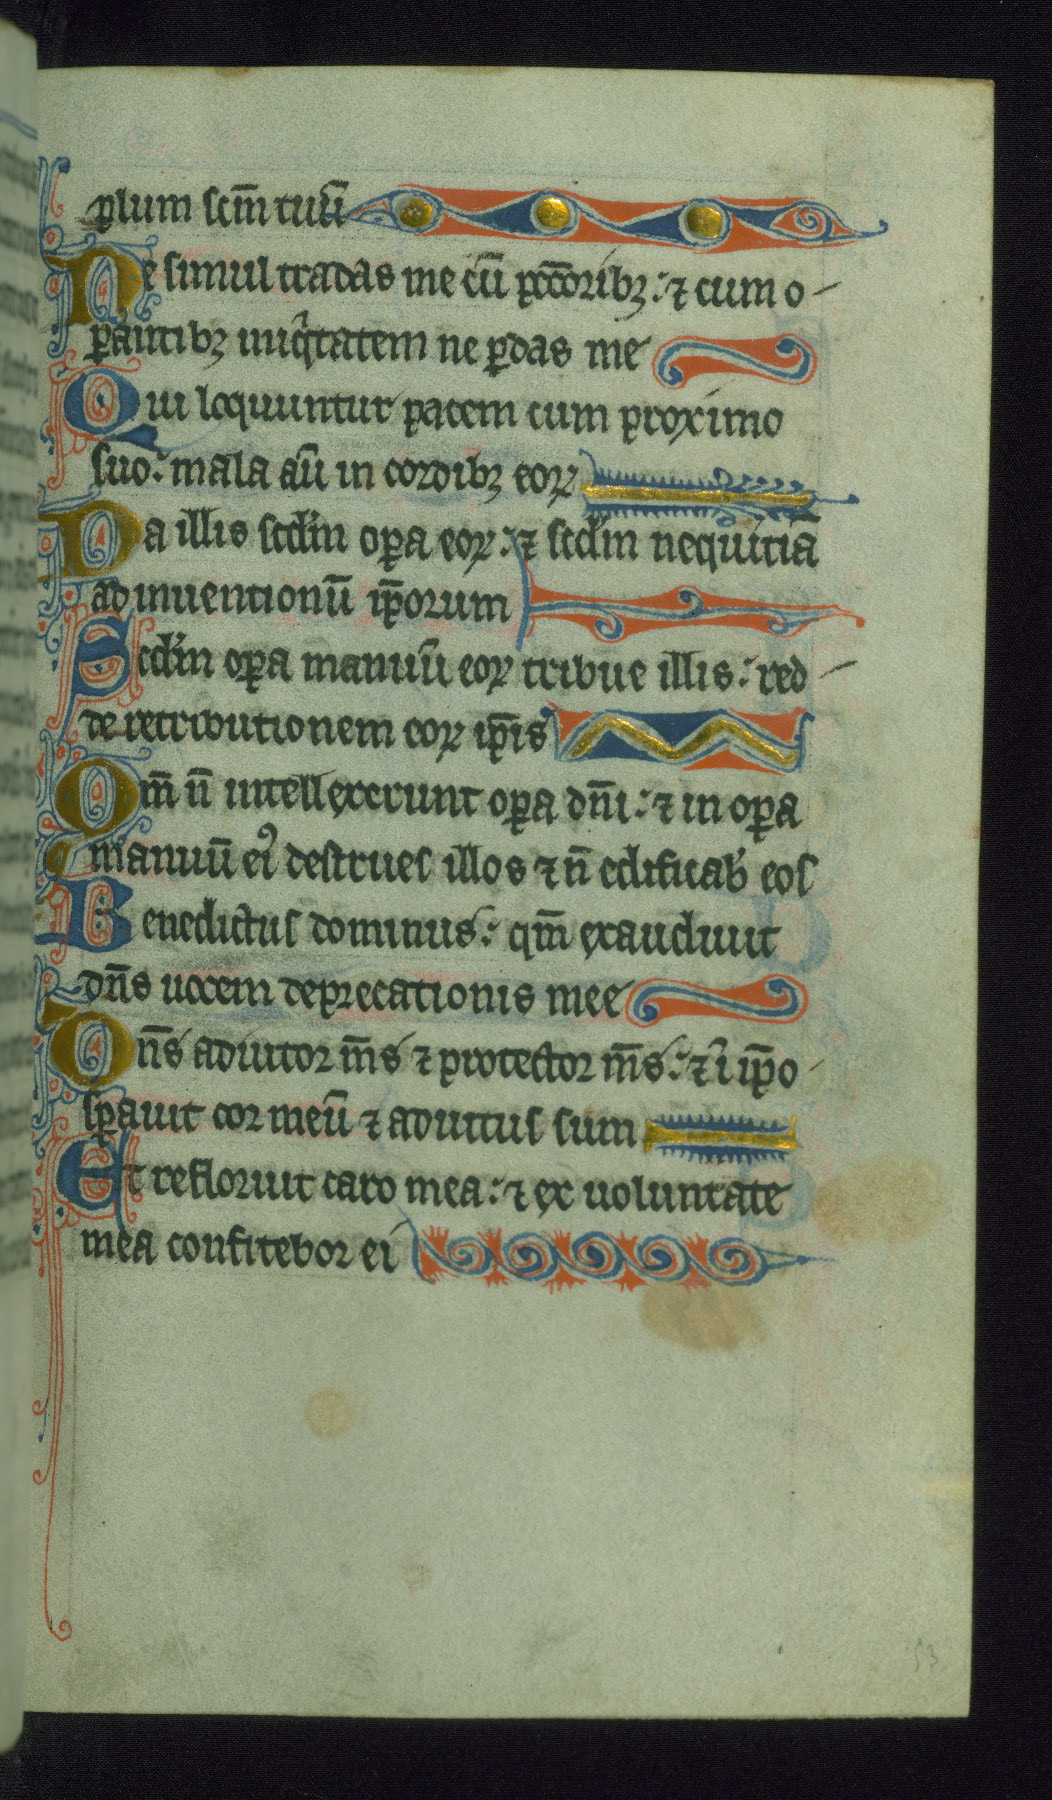 plum scm̄ tuū
Ne simul tradas me cū pc̄cōribꝫ: ⁊ cum o-
ꝑantibꝫ iniq̇tatem ne ꝑdas me
Qui loquuntur pacem cum proximo
suo: mala aū in cordibꝫ eoꝝ
Da illis scd̓m oꝑa eoꝝ: ⁊ scd̓m nequitiā
adinuentionū ip̄orum
Scd̓m oꝑa manuū eoꝝ tribue illis: red-
de retributionem eoꝝ ip̄is
Qm̄ n̄ intellexerunt oꝑa dn̄i: ⁊ in oꝑa
manuū eiꝰ destrues illos ⁊ n̄ edificab̓ eos
Benedictus dominus: qm̄ exaudiuit
dn̄s uocem deprecationis mee
Dn̄s adiutor m̄s ⁊ protector m̄s: ⁊ ī ip̄o
sꝑauit cor meū ⁊ adiutus sum
Et refloruit caro mea: ⁊ ex uoluntate
mea confitebor ei
53